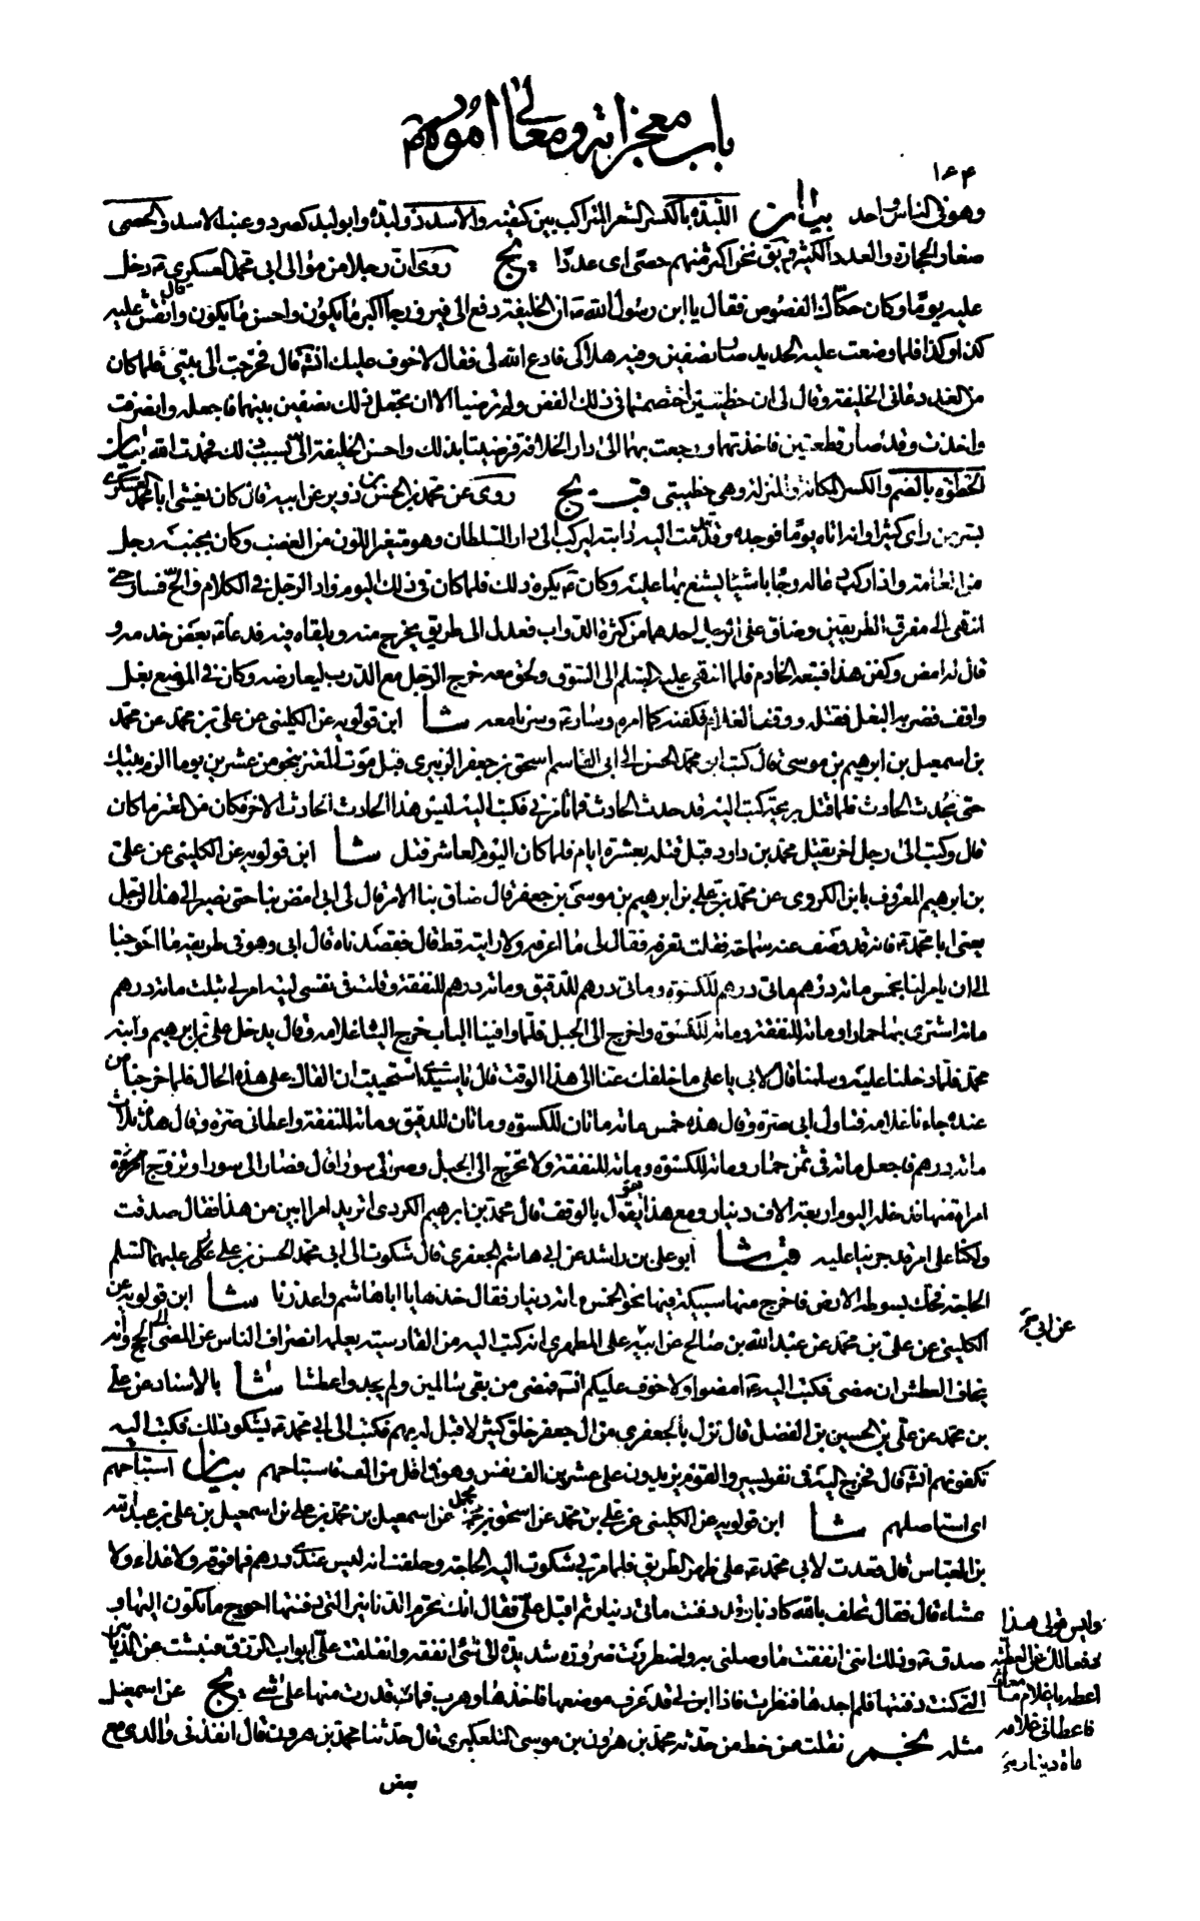 باب معجزاته ومعالى اموره ع
١٦٤
وهو فى الناس واحد بيان اللبدة بالكسر الشعر المتراكب بين كتفيه والاسد ذو لبدة وابو لبد كصرد وعنب الاسد والحصى
صغار الحجارة والعدد الكثير ويق نحن اكثر منهم حصى اى عددا . يج روى ان رجلا من موالى ابى محمد العسكرى ع دخل
عليه يوما وكان حكاك الفصوص فقال يا ابن رسول الله ان الخليفة دفع الى فيروزجا اكبر ما يكون واحسن ما يكون وقال انقش عليه
كذا وكذا فلما وضعت عليه الحديد صار نصفين وفيه هلاكى فادع الله لى فقال لا خوف عليك انش قال فخرجت الى بيتى فلما كان
من الغد دعانى الخليفة وقال لى ان حظيتين اختصمتا فى ذلك الفص ولم ترضيا الا ان تجعل ذلك نصفين بينهما فاجعله وانصرفت
واخذت وقد صار قطعتين فاخذتهما ورجعت بهما الى دار الخلافة فرضيتا بذلك واحسن الخليفة الى بسبب ذلك فحمدت الله بيان
الحظوة بالضم والكسر المكانة والمنزلة وهى حظيتى قب . يج روى عن محمد بن الحسن بن ذوير عن ابيه قال كان يغشى ابا محمد العسكرى
بسر من راى كثيرا وانه اتاه يوما فوجده وقد قدمت اليه دابته ليركب الى دار السلطان وهو متغير اللون من الغضب وكان يجنبه رجل
من العامة واذا ركب دعا له وجاء باشياء يشنع بها عليه وكان ع يكره ذلك فلما كان فى ذلك اليوم زاد الرجل فى الكلام والح فسار حتى
انتهى الى مفرق الطريقين وضاق على الرجل احدهما من كثرة الدواب فعدل الى طريق يخرج منه ويلقاه فيه فدعا ع بعض خدمه و
قال له امض وكفن هذا فتبعه الخادم فلما انتهى عليه السلم الى السوق ونحن معه خرج الرجل من الدرب ليعارضه وكان فى الموضع بغل
واقف فضربه البغل فقتله ووقف الغلام فكفنه كما امره وسار ع وسرنا معه شا ابن قولويه عن الكلينى عن على بن محمد عن محمد
بن اسمعيل بن ابرهيم بن موسى قال كتب ابو محمد الحسن الى ابى القاسم اسحق بن جعفر الزبيرى قبل موت المعتز بنحو من عشرين يوما الزم بيتك
حتى يحدث الحادث فلما قتل بريحة كتب اليه قد حدث الحادث فما تامرنى فكتب اليه ليس هذا الحادث الحادث الاخر فكان من المعتز ما كان
قال وكتب الى رجل اخر بقتل محمد بن داود قبل قتله بعشرة ايام فلما كان اليوم العاشر قتل شا ابن قولويه عن الكلينى عن على
بن ابرهيم المعروف بابن الكردى عن محمد بن على بن ابرهيم بن موسى بن جعفر قال ضاق بنا الامر قال لى ابى امض بنا حتى نصير الى هذا الرجل
يعنى ابا محمد ع فانه قد وصف عنه سماحة فقلت تعرفه فقال لى ما اعرفه ولا رايته قط قال فقصدناه قال ابى وهو فى طريقه ما احوجنا
الى ان يامر لنا بخمس مائة درهم مائتى درهم للكسوة ومائتى درهم للدقيق ومائة درهم للنفقة وقلت فى نفسى ليته امر لى بثلث مائة درهم
مائة اشترى بها حمارا ومائة للنفقة ومائة للكسوة واخرج الى الجبل فلما وافينا الباب خرج الينا غلامه وقال يدخل على بن ابرهيم وابنه
محمد فلما دخلنا عليه وسلمنا قال لابى يا على ما خلفك عنا الى هذا الوقت قال يا سيدى استحييت ان القاك على هذه الحال فلما خرجنا من
عنده جاءنا غلامه فناول ابى صرة وقال هذه خمس مائة مائتان للكسوة ومائتان للدقيق ومائة للنفقة واعطانى صرة وقال هذه ثلاث
مائة درهم فاجعل مائة فى ثمن حمار ومائة للكسوة ومائة للنفقة ولا تخرج الى الجبل وصر الى سورا قال فصار الى سورا وتزوج امراة
امراة منها فدخله اليوم اربعة الاف دينار ومع هذا يقول بالوقف قال محمد بن ابرهيم الكردى اتريد امرا ابين من هذا فقال صدقت
ولكنا على امر قد جرينا عليه قب شا ابو على بن راشد عن ابى هاشم الجعفرى قال شكوت الى ابى محمد الحسن بن على عليهما السلم
الحاجة فحك بسوطه الارض فاخرج منها سبيكة فيها نحو الخمس مائة دينار فقال خذها يا ابا هاشم واعذرنا شا ابن قولويه عن
الكلينى عن على بن محمد عن عبد الله بن صالح عن ابيه عن ابى على المطهرى انه كتب اليه من القادسية يعلمه انصراف الناس عن المضى الى الحج وانه
يخاف العطش ان مضى فكتب اليه ع امضوا ولا خوف عليكم انش فمضى من بقى سالمين ولم يجدوا عطشا شا بالاسناد عن على
بن محمد عن على بن الحسين بن الفضل قال نزل بالجعفرى من ال جعفر خلق كثير لا قبل له بهم فكتب الى ابى محمد ع يشكو ذلك فكتب اليه
تكفونهم انش قال فخرج اليهم فى نفر يسير والقوم يزيدون على عشرين الف نفس وهو فى اقل من الف فاستباحهم بيان استباحهم
اى استاصلهم شا ابن قولويه عن الكلينى عن على بن محمد عن اسحق بن محمد عن اسمعيل بن محمد بن على بن اسمعيل بن على بن عبد الله
بن العباس قال قعدت لابى محمد ع على ظهر الطريق فلما مر بى شكوت اليه الحاجة وحلفت انه ليس عندى درهم فما فوقه ولا غداء ولا
عشاء قال فقال تحلف بالله كاذبا وقد دفنت مائتى دينار ثم اقبل على فقال انك تحرم الدنانير التى دفنتها احوج ما تكون اليها و
صدق ع وذلك اننى انفقت ما وصلنى به واضطررت ضرورة شديدة الى شئ انفقه وانغلقت على ابواب الرزق فنبشت عن الدنانير
التى كنت دفنتها فلم اجدها فنظرت فاذا ابن لى قد عرف موضعها فاخذها وهرب فما قدرت منها على شئ . يج عن اسمعيل
مثله نجم نقلت من خط من حدثه محمد بن هرون بن موسى التلعكبرى قال حدثنا محمد بن هرون قال انفذنى والدى مع
بعض
عن ابى
وليس قولى هذا
دفعا لك عن العطية
اعطه يا غلام ما معك
فاعطانى غلامه
مائة دينار